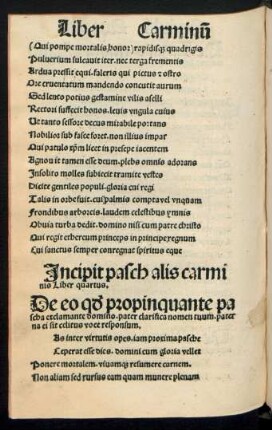 Liber Carminū
(Qui pompe mortalis honor) rapidisq̄ quadrigis
Puluerium sulcauit iter. nec terga frementis
Ardua pressit equi. faleris qui pictus ⁊ ostro
Ore cruentatum mandendo concutit aurum
Sed lento potius gestamine vilis aselli
Rectori suffecit honos. leuis vngula cuius
Ut tanto sessore decus mirabile portans
Nobilior sub fasce foret. non illius impar
Qui patulo ꝗ̄m licet in presepe iacentem
Agnouit tamen esse deum. plebs omnis adorans
Insolito molles subiecit tramite vestes
Dicite gentiles populi. gloria cui regi
Talis in orbe fuit. cui palmis compta vel vnquam
Frondibus arboreis. laudem celestibus ymnis
Obuia turba dedit. domino nisi cum patre christo
Qui regit ethercum princeps in principe regnum
Cui sanctus semper conregnat spiritus eque
Incipit pasch alis carmi
nis Liber quartus.
De eo qď propinquante pa
scha exclamante domino. pater clarifica nomen tuum. pater
na ei sit celitus voce responsum.
As inter virtutis opes. iam proxima pasche
Ceperat esse dies. domini cum gloria vellet
Ponere mortalem. viuamq̄ resumere carnem.
Non aliam sed rursus eam quam munere plenam